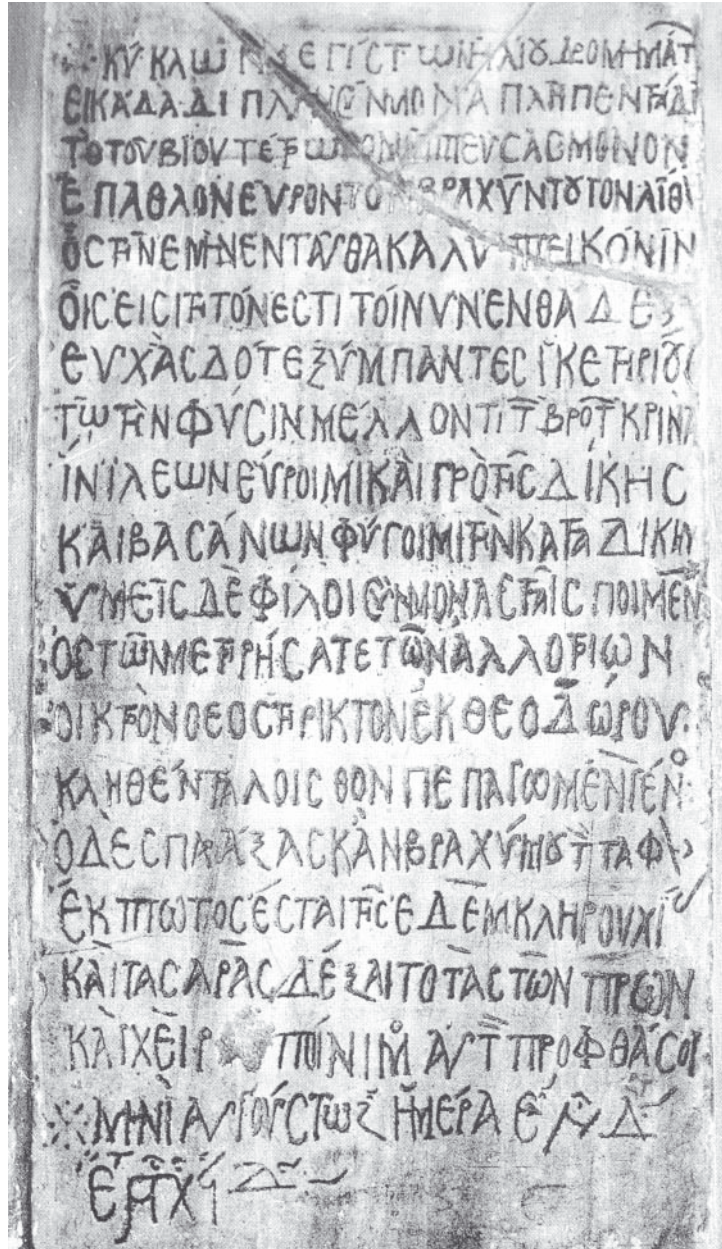 ΚΥΚΛΩ ΜΕΓΙCΤΩ ΗΛΙΟΥ ΔΡΟΜΗΜΑΤ
ΕΙΚΑΔΑ ΔΙΠΛΗΝ CΥΝ ΜΟΝΑΠΛΗ ΠΕΝΤΑΔΙ
ΤΟ ΤΟΥ ΒΙΟΥ ΤΕΤΡΩΡΟΝ ΙΠΠΕΥCΑC ΜΟΝΟΝ
ΕΠΑΘΛΟΝ ΕΥΡΟΝ ΤΟΝ ΒΡΑΧΥΝ ΤΟΥΤΟΝ ΛΙΘΟ
ΟC ΤΗΝ ΕΜΗΝ ΕΝΤΑΥΘΑ ΚΑΛΥΠΤΕΙ ΚΟΝΙΝ
ΟΙC ΕΙCΙΤΗΤΟΝ ΕCΤΙ ΤΟΙΝΥΝ ΕΝΘΑΔΕ
ΕΥΧΑC ΔΟΤΕ ΞΥΜΠΑΝΤΕC ΙΚΕΤΗΡΙΟΥC
ΤΩ ΤΗΝ ΦΥCΙΝ ΜΕΛΛΟΝΤΙ Τ ΒΡΟΤ ΚΡΙΝΑΙ
ΙΝ ΙΛΕΩΝ ΕΥΡΟΙΜΙ ΚΑΙ ΠΡΟ ΤΗC ΔΙΚΗC
ΚΑΙ ΒΑCΑΝΩΝ ΦΥΓΟΙΜΙ ΤΗΝ ΚΑΤΑΔΙΚΗΝ
ΥΜΕΙC ΔΕ ΦΙΛΟΙ CΥΝ ΜΟΝΑCΤΑΙC ΠΟΙΜΕΝ
ΟCΤΩΝ ΜΕΤΡΗCΑΤΕ ΤΩΝ ΑΛΛΟΤΡΙΩΝ
ΟΙΚΤΡΟΝ Ο ΘΕΟCΤΗΡΙΚΤΟΝ ΕΚ ΘΕΟΔΩΡΟΥ
ΚΛΗΘΕΝΤΑ ΛΟΙCΘΟΝ ΠΕΠΑΓΩΜΕΝ ΓΕΝ
Ο ΔΕ CΠΑΡΑΞΑC ΚΑΝ ΒΡΑΧΥ ΜΟΥ Τ ΤΑΦ
ΕΚΠΤΩΤΟC ΕCΤΑΙ ΤΗC ΕΔΕΜ ΚΛΗΡΟΥΧΙ
ΚΑΙ ΤΑC ΑΡΑC ΔΕΞΑΙΤΟ ΤΑC ΤΩΝ ΠΡΩΝ
ΚΑΙ ΧΕΙΡ ΠΟΙΝΙΜ ΑΥΤ ΠΡΟΦΘΑCΟΙ
ΜΗΝΙ ΑΥΓΟΥCΤΩ Ξ ΗΜΕΡΑ Ε Δ
ΕΤ